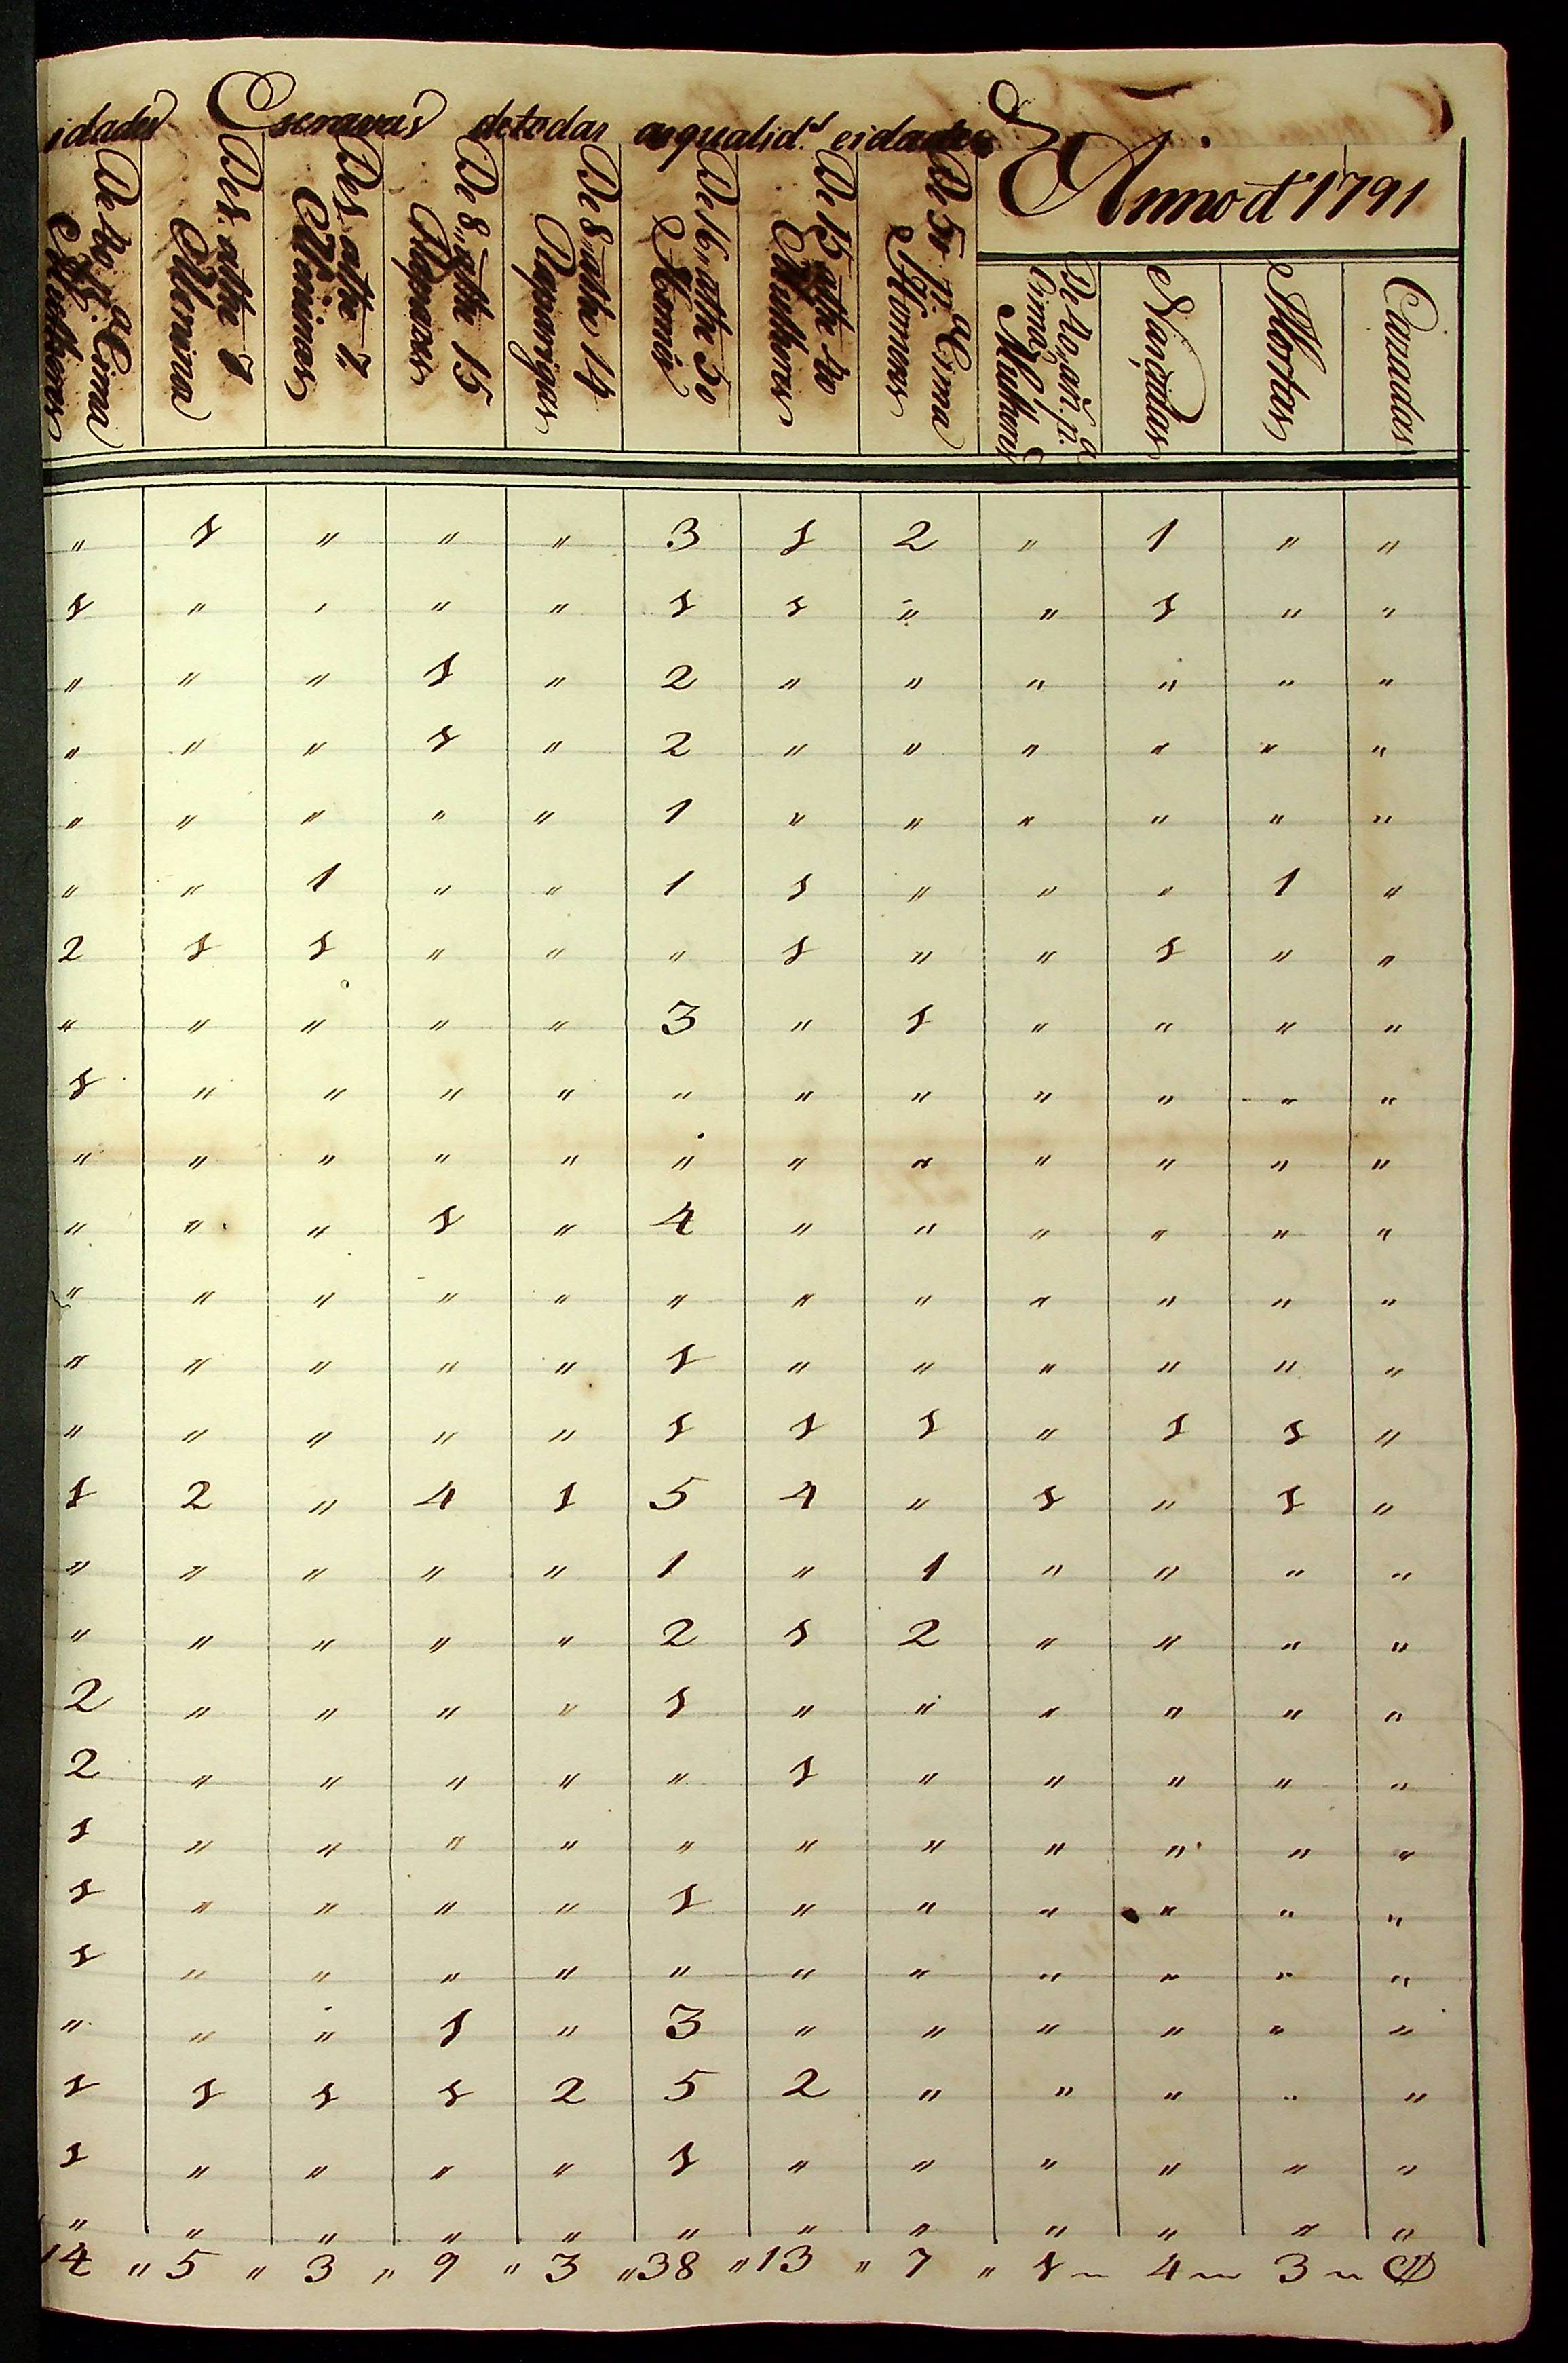 idades Escravas de todas as qualid.s e idades
Anno d 1791
De 40 p.a Cima Mulheres
De 1 athe 7 Meninos
De 1 athe 7 Meninas
De 8, athe 15 Rapazes
De 8, athe 14 Raparigas
De 16, athe 50 Homẽs
De 15 athe 40 Mulheres
De 50 p.a Cima Homens
De 40, añ. p.a Cima Mulheres
Nançadas
Mortas
Cazadas
" 1 " " " 3 1 2 " 1 " "
1 " " " " 1 1 " " 1 " "
" " " 1 " 2 " " " " " "
" " " 1 " 2 " " " " " "
" " " " " 1 " " " " " "
" " 1 " " 1 1 " " " 1 "
2 1 1 " " " 1 " " 1 " "
" " " " " 3 " 1 " " " "
1 " " " " " " " " " " "
" " " " " " " " " " " "
" " " 1 " 4 " " " " " "
" " " " " " " " " " " "
" " " " " 1 " " " " " "
" " " " " 1 1 1 " 1 1 "
1 2 " 4 1 5 4 " 1 " 1 "
" " " " " 1 " 1 " " " "
" " " " " 2 1 2 " " " "
2 " " " " 1 " " " " " "
2 " " " " " 1 " " " " "
1 " " " " " " " " " " "
1 " " " " 1 " " " " " "
1 " " " " " " " " " " "
" " " 1 " 3 " " " " " "
1 1 1 1 2 5 2 " " " " "
1 " " " " 1 " " " " " "
" " " " " " " " " " " "
14 " 5 " 3 " 9 " 3 " 38 " 13 " 7 " 1 ~ 4 ~ 3 ~